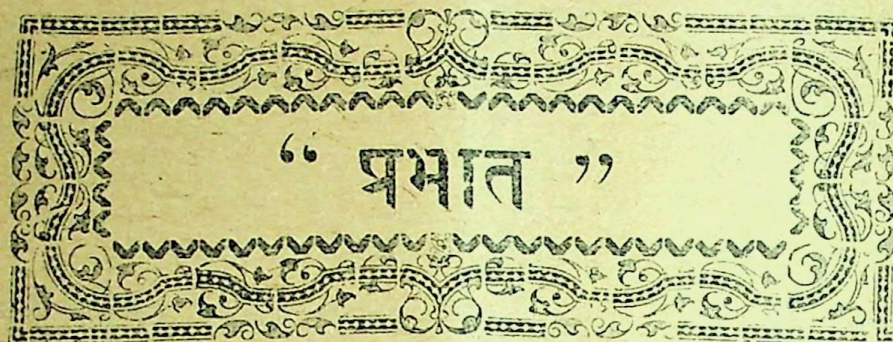 “ प्रभात ”